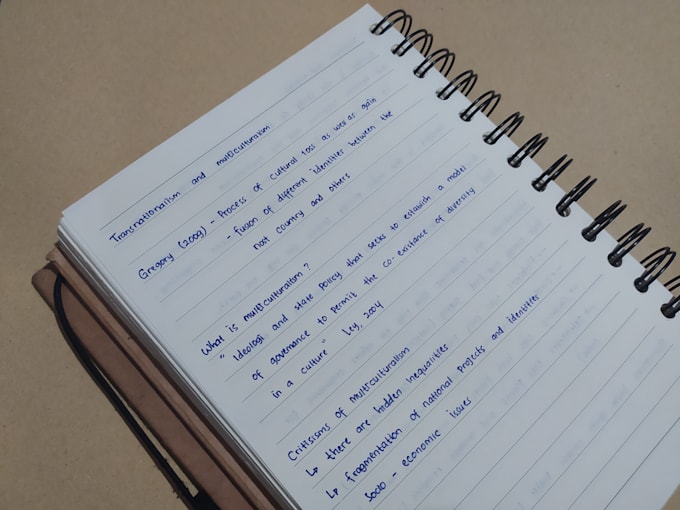 Transnationalism and multiculturalism
Gregory (2009) - Process of cultural loss as well as gain
- fusion of different identities between the
host country and others
What is multiculturalism?
" Ideologi and state policy that seeks to establish a model
of governance to permit the co-existance of diversity
in a culture " Ley, 2004
Critisisms of multiculturalism
↳ there are hidden inequalities
↳ fragmentation of national projects and identities
Socio - economic issues